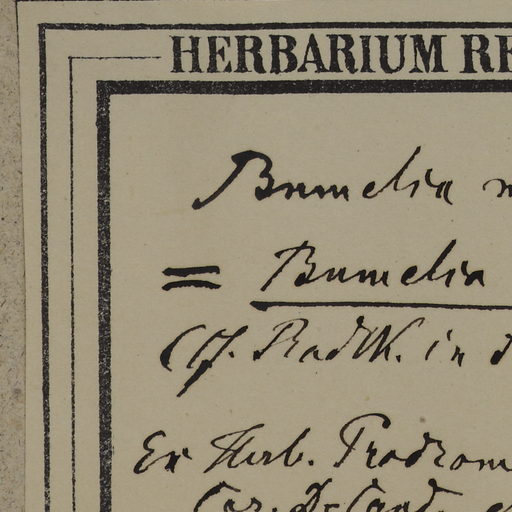 HERBARIUM RE
Bumelia
= Bumelia
Cf. Radlk. in
Ex Herb. Prodrom